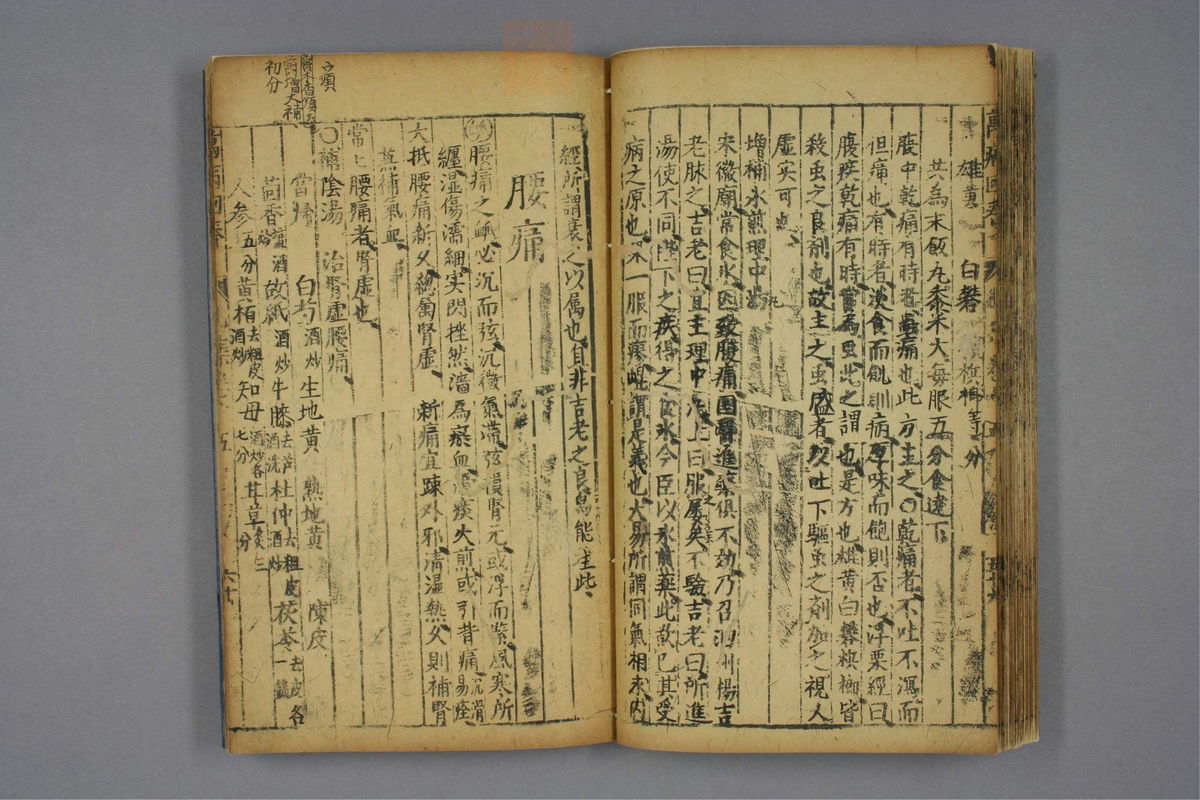 雄黄 白礬 檳榔 等分
共為末飯丸黍米大每服五分食遠下
腹中乾痛有時者蟲痛也此方主之〇乾痛者不吐不瀉而
但痛也有時者淡食而飢則病厚味而飽則否也浮栗經曰
腹疾乾痛有時當為虫此之謂也是方也雄黄白礬檳榔皆
殺虫之良劑也故主之虫盛者以吐下驅虫之劑加之視人
虚实可也
增補氷煎理中丸
宋徽廟常食氷因致腹痛国醫進藥俱不効乃召泗州楊吉
老脉之吉老曰宜主理中丸上曰服屡矣不驗吉老曰所進
湯使不同陛下之疾得之食氷今臣以氷煎藥此欲已其受
病之原也果一服而瘳崐謂是義也大易所謂同氣相求内
經所謂衰之以属也自非吉老之良烏能主此
腰痛
腰痛之脉必沉而弦沉微氣滞弦損腎元或浮而緊風寒所
纏湿傷濡細实閃挫然濇為瘀血滑痰火煎或引昔痛易痊
沉滑
大抵腰痛新久總属腎虚 新痛宜踈外邪清湿熱久則補腎
兼補氣血
常七腰痛者腎虚也
〇補陰湯 治腎虚腰痛
當歸 白芍酒炒 生地黄 熟地黄 陳皮
茴香塩酒炒 故紙酒炒 牛膝去芦酒洗 杜仲去粗皮酒炒 茯苓去皮各一錢
人参五分 黄栢去粗皮酒炒 知母酒炒各七分 甘草炙三分
初分